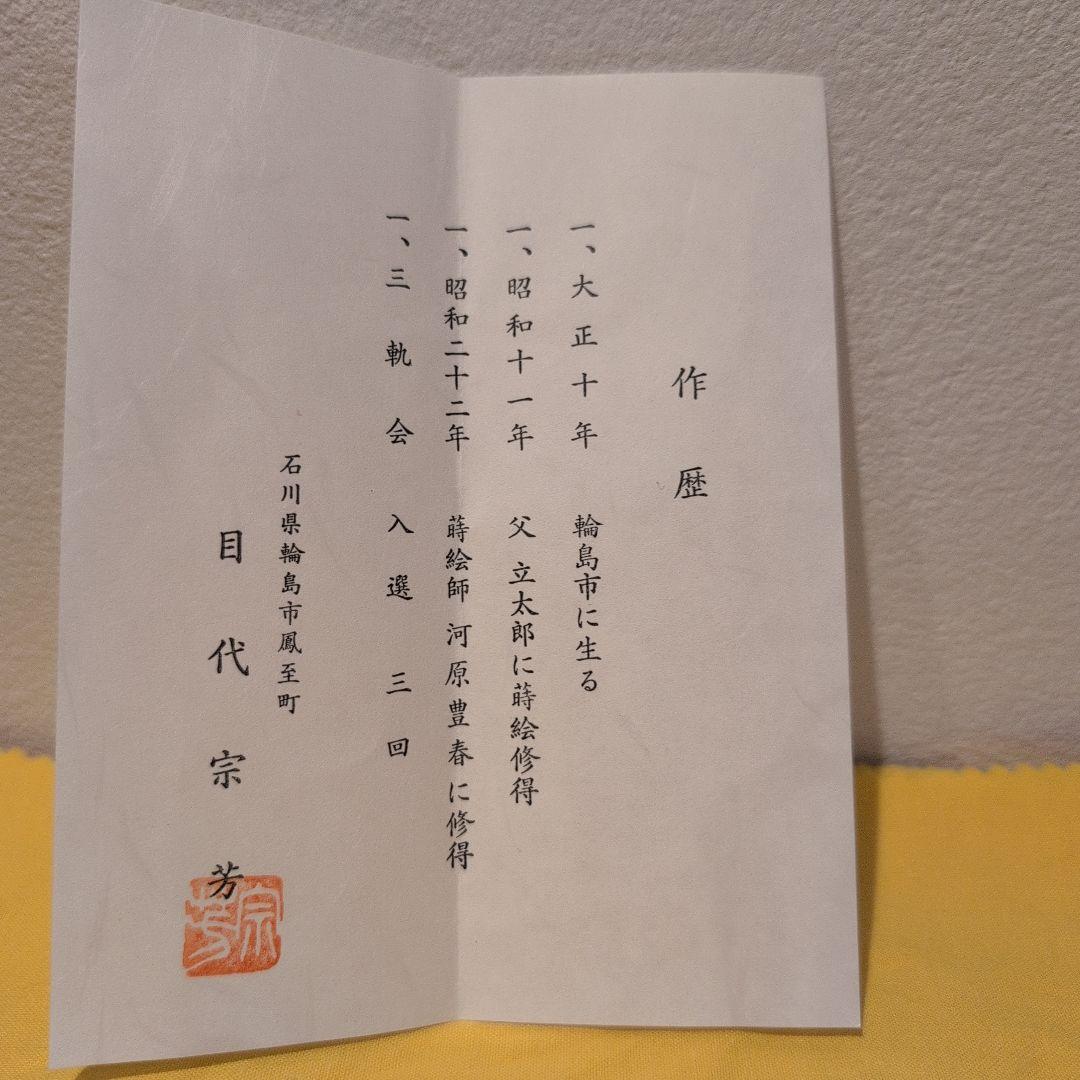 作歴
一、大正十年 輪島市に生る
一、昭和十一年 父 立太郎に蒔絵修得
一、昭和二十二年 蒔絵師 河原豊春に修得
一、三軌会入選三回
石川県輪島市鳳至町
目代宗芳
宗芳